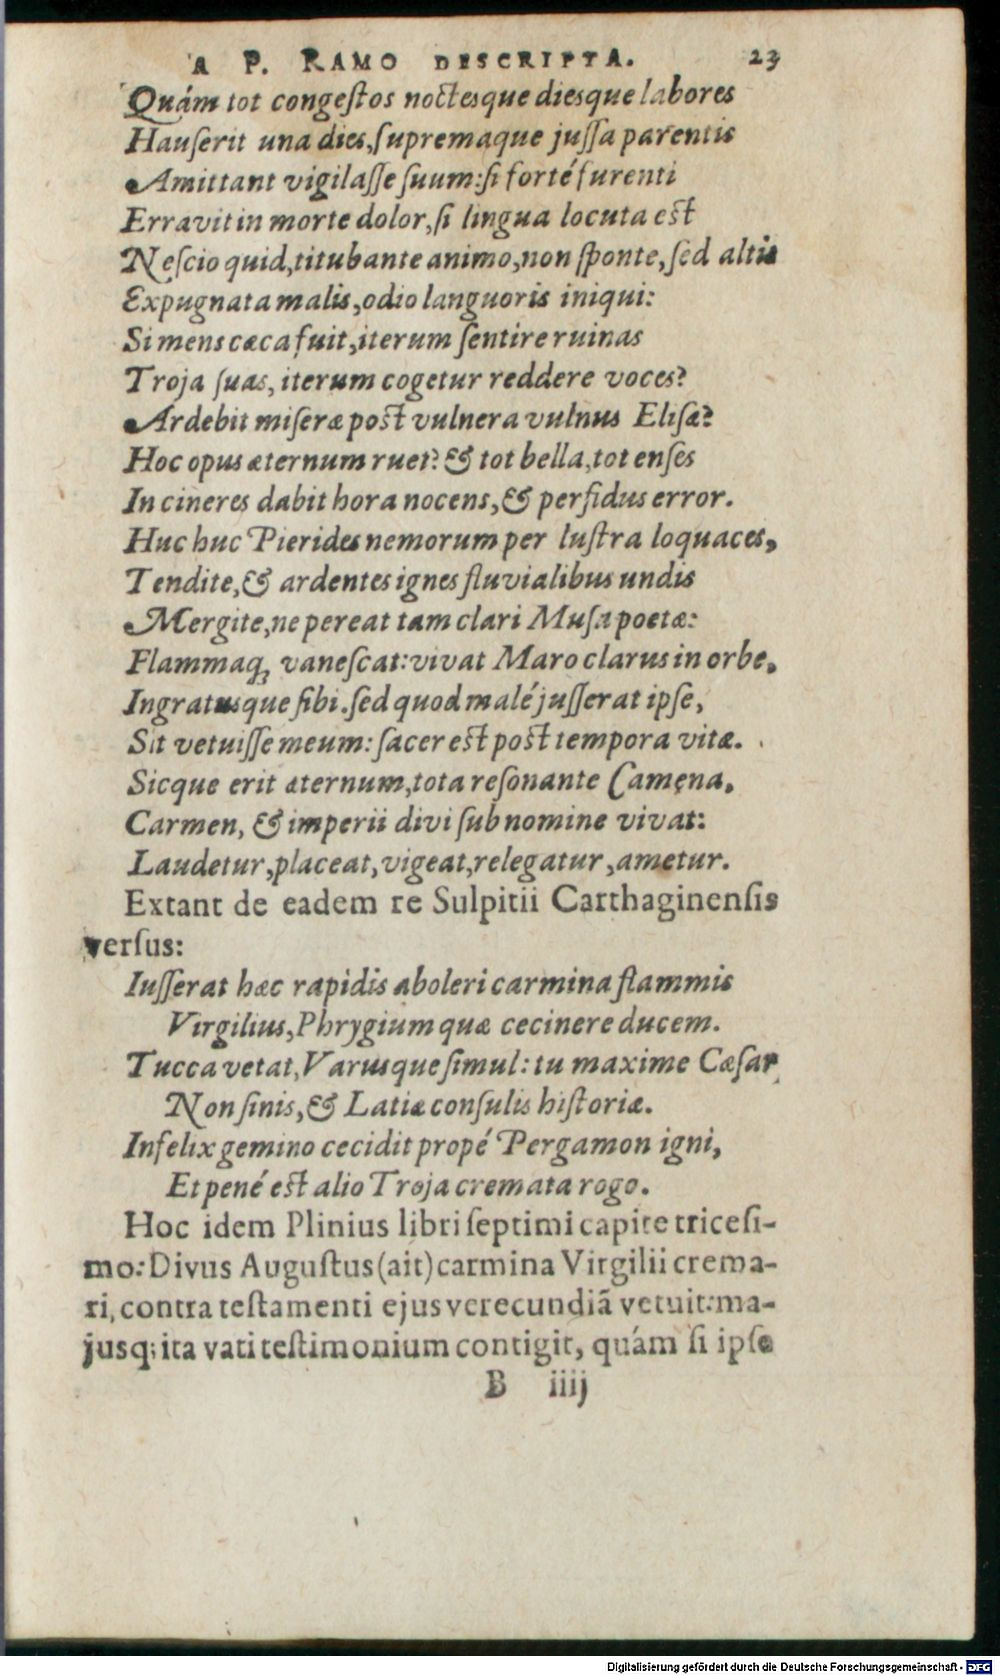 A P. RAMO DESCRIPTA. 23
Quám tot congeſtos noctesque diesque labores
Hauſerit una dies, ſupremaque juſſa parentis
Amittant vigilaſſe ſuum: ſi forté furenti
Erravit in morte dolor, ſi lingua locuta eſt
Neſcio quid, titubante animo, non ſponte, ſed altis
Expugnata malis, odio languoris iniqui:
Si mens cæca fuit, iterum ſentire ruinas
Troja ſuas, iterum cogetur reddere voces?
Ardebit miſeræ poſt vulnera vulnus Eliſæ?
Hoc opus æternum ruet? & tot bella, tot enſes
In cineres dabit hora nocens, & perfidus error.
Huc huc Pierides nemorum per luſtra loquaces,
Tendite, & ardentes ignes fluvialibus undis
Mergite, ne pereat tam clari Muſa poetæ:
Flammaq; vaneſcat: vivat Maro clarus in orbe,
Ingratusque ſibi. ſed quod malé juſſerat ipſe,
Sit vetuiſſe meum: ſacer eſt poſt tempora vitæ.
Sicque erit æternum, tota reſonante Camęna,
Carmen, & imperii divi ſub nomine vivat:
Laudetur, placeat, vigeat, relegatur, ametur.
Extant de eadem re Sulpitii Carthaginenſis
verſus:
Iuſſerat hæc rapidis aboleri carmina flammis
Virgilius, Phrygium quæ cecinere ducem.
Tucca vetat, Variusque ſimul: tu maxime Cæſar
Non ſinis, & Latiæ conſulis hiſtoriæ.
Infelix gemino cecidit propé Pergamon igni,
Et pené eſt alio Troja cremata rogo.
Hoc idem Plinius libri ſeptimi capite triceſi-
mo: Divus Auguſtus (ait) carmina Virgilii crema-
ri, contra teſtamenti ejus verecundiã vetuit: ma-
jusq; ita vati teſtimonium contigit, quám ſi ipſe
B iiij
Digitalisierung gefördert durch die Deutsche Forschungsgemeinschaft - DFG